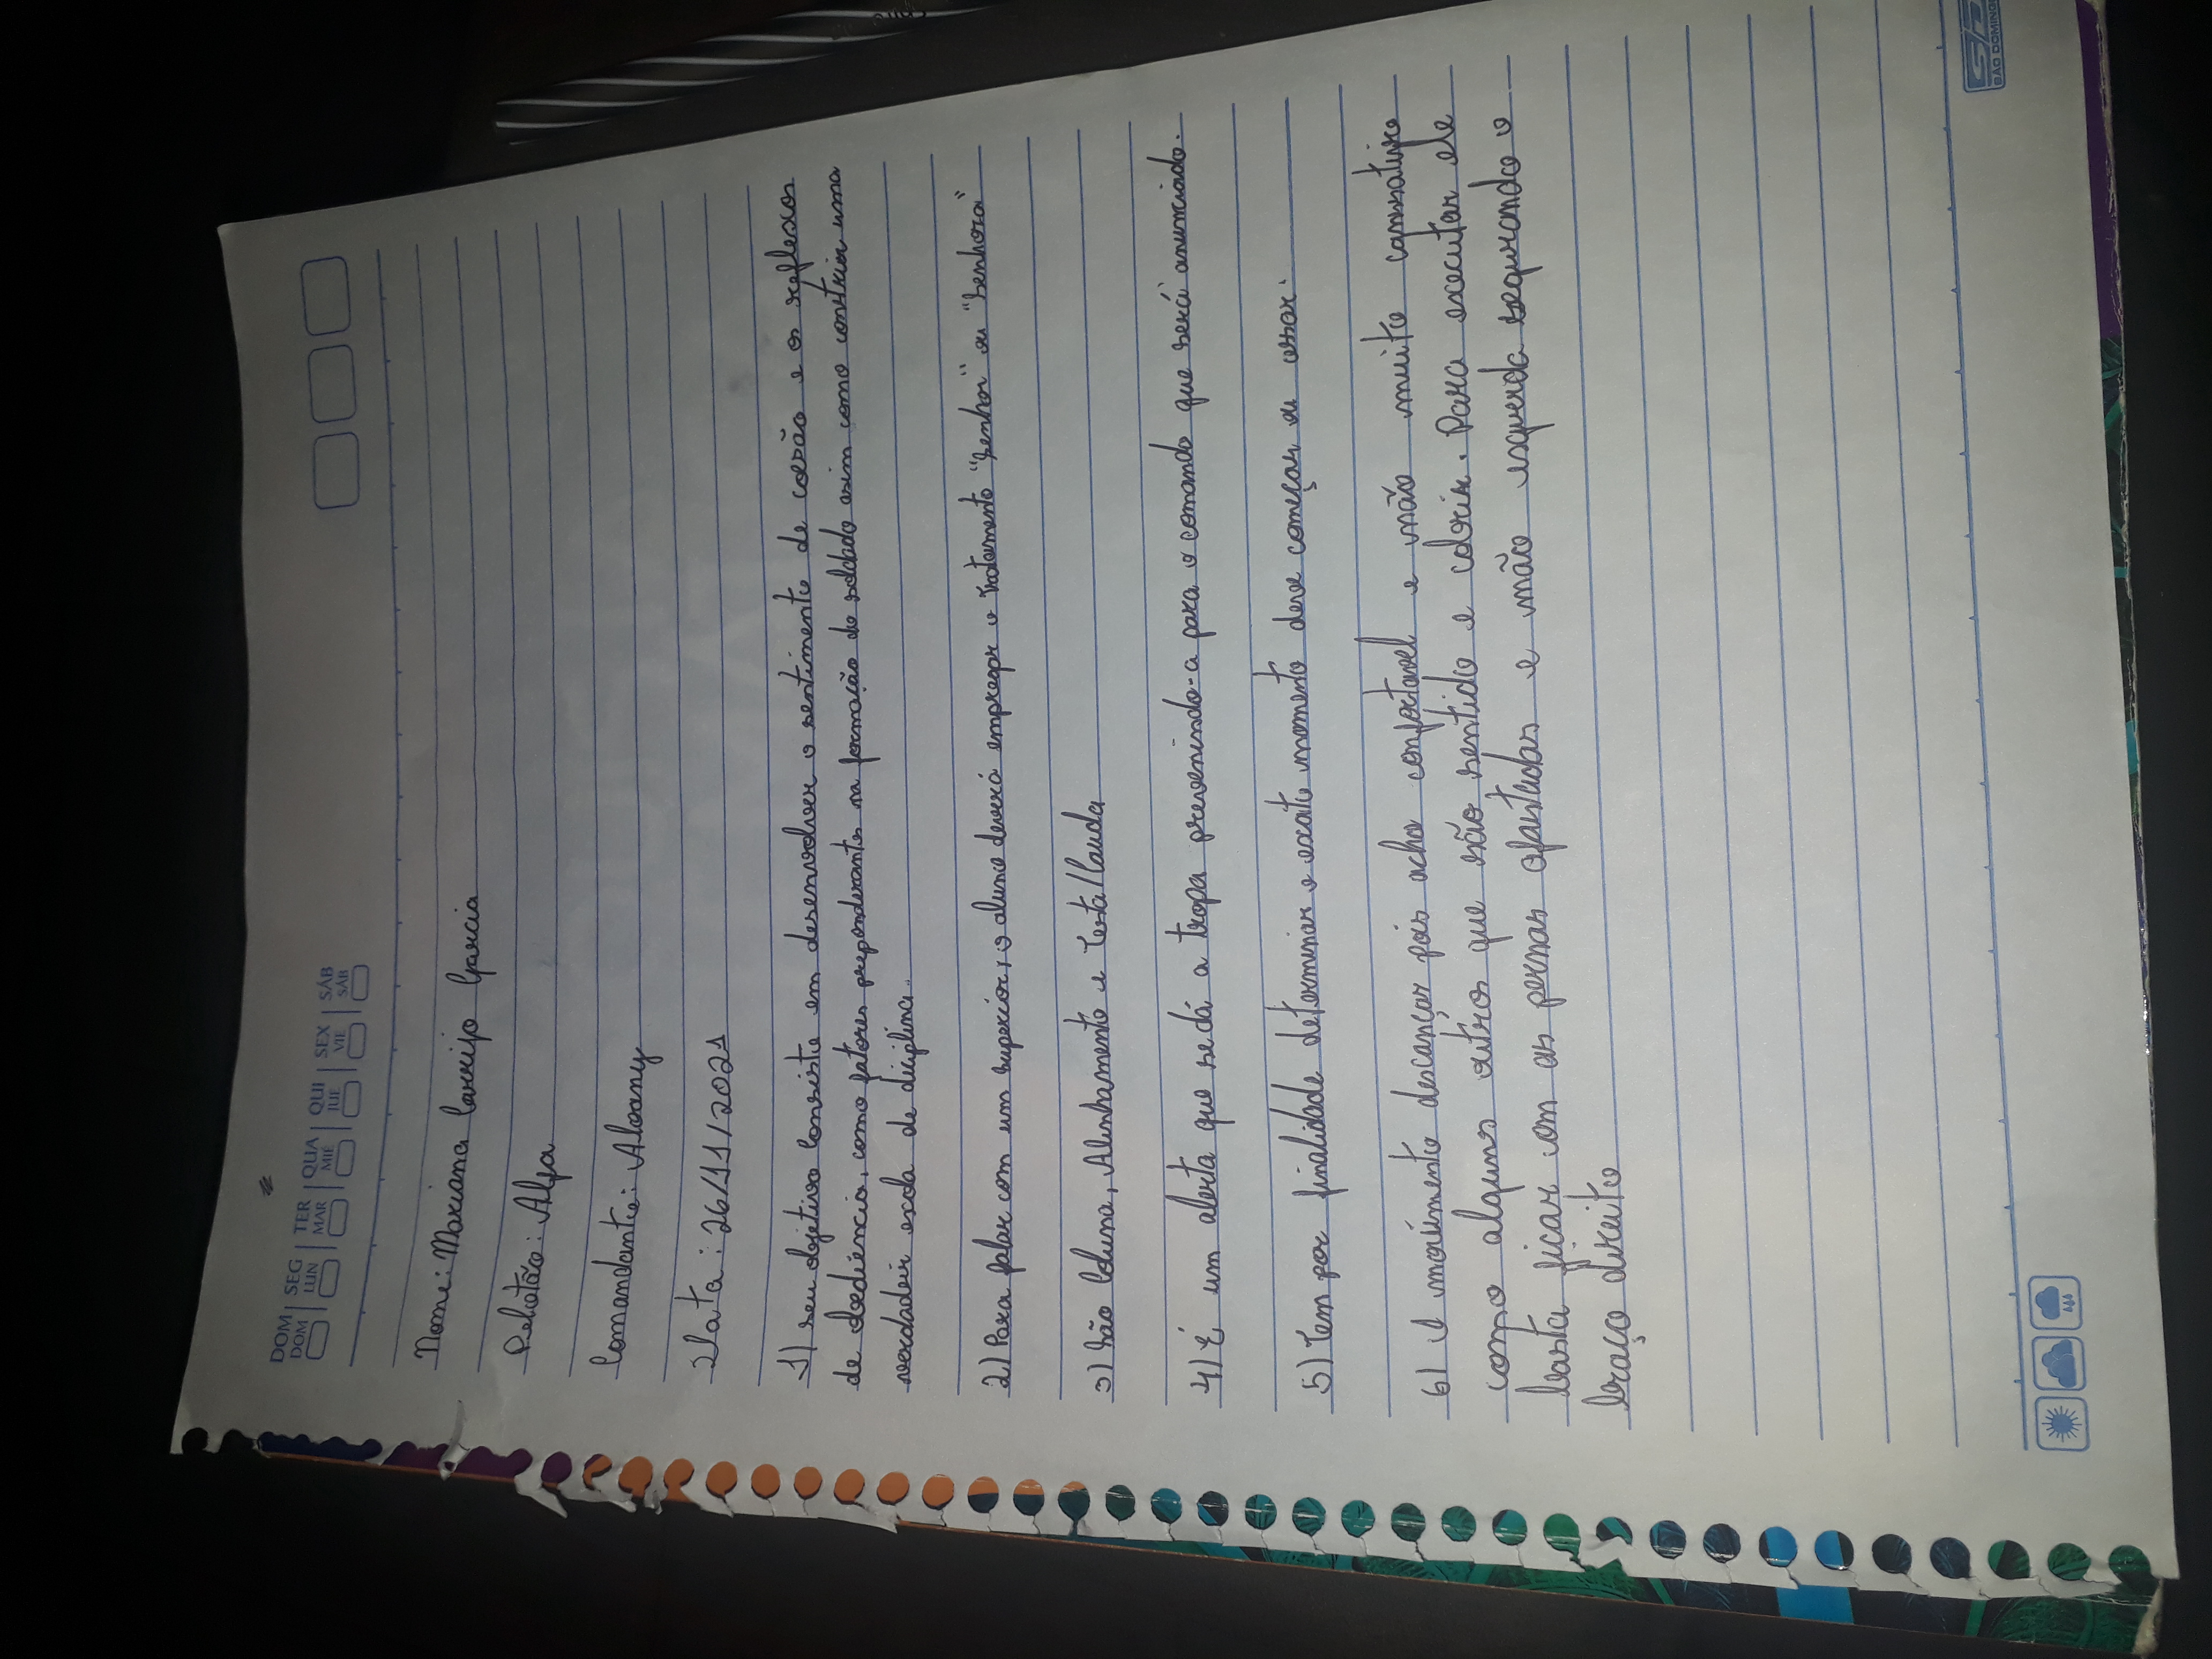 DOM SEG TER QUA QUI SEX SÁB
DOM LUN MAR MIÉ JUE VIE SÁB
Nome: Mariana Carrijo Garcia
Pelotão: Alfa
Comandante: Aloany
Data: 26/11/2021
1) seu objetivo consiste em desenvolver o sentimento de coesão e os reflexos
de obediência, como fatores preponderantes na formação do soldado asim como constriir uma
verdadeir escola de diciplina.
2) Para falar com um superior, o aluno deverá empregar o tratamento "Senhor" ou "Senhora"
3) São Coluna, Alinhamento e Testa/Cauda
4) É um alerta que se dá a tropa prevenindo-a para o comando que será anunciado.
5) Tem por finalidade determinar o exato momento deve começar ou cessar.
6) O movimento descançar pois acho confortavel e não muito cansativo
como alguns outros que são sentido e cobrir. Para executar ele
basta ficar com as pernas afastadas e mão esquerda segurando o
braço direito
SÃO DOMINGO